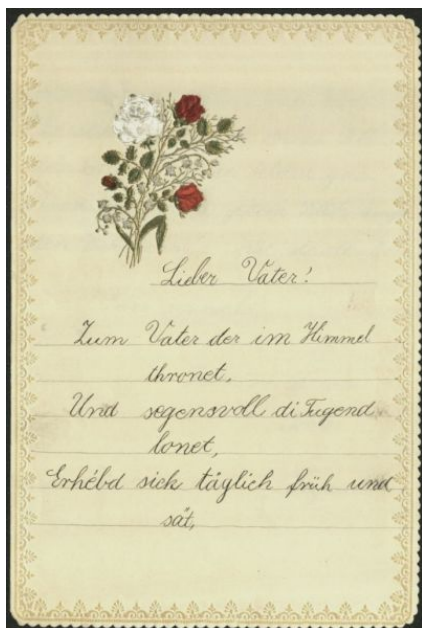 Lieber Vater!
Zum Vater der im Himmel
thronet,
Und segensvoll di Tugend
lonet,
Erhébd sick täglich früh und
sät,